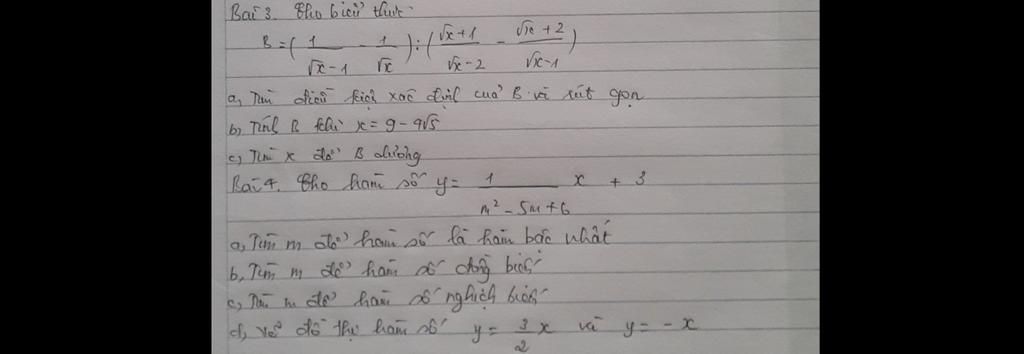 Bài 3. Cho biểu thức
B = ( 1/(√x - 1) - 1/√x ) : ( (√x + 1)/(√x - 2) - (√x + 2)/(√x - 1) )
a, Tìm điều kiện xác định của B và rút gọn
b, Tính B khi x = 9 - 4√5
c, Tìm x để B dương
Bài 4. Cho hàm số y = 1/(m² - 5m + 6) x + 3
a, Tìm m để hàm số là hàm bậc nhất
b, Tìm m để hàm số đồng biến
c, Tìm m để hàm số nghịch biến
d, Vẽ đồ thị hàm số y = 3/2 x và y = - x